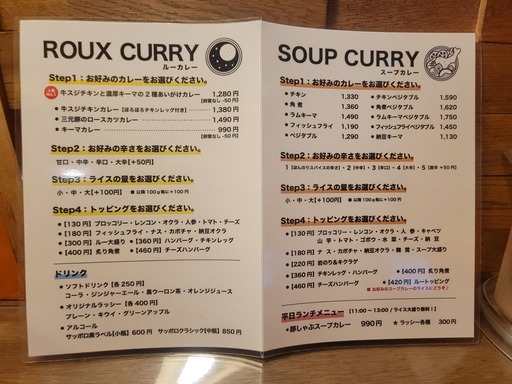 ROUX CURRY
ルーカレー
Step1：お好みのカレーをお選びください。
人気No.1 牛スジチキンと濃厚キーマの2種あいがけカレー 1,280円
[卵黄なし-50円
・牛スジチキンカレー [ほろほろチキンレッグ付き] 1,380円
・三元豚のロースカツカレー 1,490円
・キーマカレー 990円
[卵黄なし-50円
Step2：お好みの辛さをお選びください。
甘口・中辛・辛口・大辛[+50円]
Step3：ライスの量をお選びください。
小・中・大[+100円] ■以降100g毎に+100円
Step4：トッピングをお選びください。
●[130円] ブロッコリー・レンコン・オクラ・人参・トマト・チーズ
●[180円] フィッシュフライ・ナス・カボチャ・納豆オクラ
●[300円] ルー大盛り ●[360円] ハンバーグ・チキンレッグ
●[400円] 炙り角煮 ●[460円] チーズハンバーグ
ドリンク
● ソフトドリンク [各250円]
コーラ・ジンジャーエール・黒ウーロン茶・オレンジジュース
● オリジナルラッシー [各400円]
プレーン・キウイ・グリーンアップル
● アルコール
サッポロ黒ラベル[小瓶] 600円 サッポロクラシック[中瓶] 850円
SOUP CURRY
スープカレー
Step1：お好みのカレーをお選びください。
● チキン 1,330 ● チキンベジタブル 1,590
● 角煮 1,360 ● 角煮ベジタブル 1,620
● ラムキーマ 1,490 ● ラムキーマベジタブル 1,750
● フィッシュフライ 1,190 ● フィッシュフライベジタブル 1,450
● ベジタブル 1,290 ● 納豆キーマ 1,130
Step2：お好みの辛さをお選びください。
1 [ほんのりスパイスの辛さ]・2 [中辛]・3 [辛口]・4 [大辛]・5 [激辛 +50円]
Step3：ライスの量をお選びください。
小・中・大[+100円] ■以降100g毎に+100円
Step4：トッピングをお選びください。
●[130円] ブロッコリー・レンコン・オクラ・人参・キャベツ
山芋・トマト・ゴボウ・水菜・チーズ・納豆
●[180円] ナス・カボチャ・納豆オクラ・舞茸・スープ大盛り
●[220円] 岩のり&キクラゲ
●[360円] チキンレッグ・ハンバーグ ●[400円] 炙り角煮
●[460円] チーズハンバーグ ●[420円] ルートッピング
■お好みのスープカレーのライスにどうぞ♪
平日ランチメニュー [11:00～13:00/ライス大盛り無料！]
● 豚しゃぶスープカレー 990円 ★ラッシー各種 300円